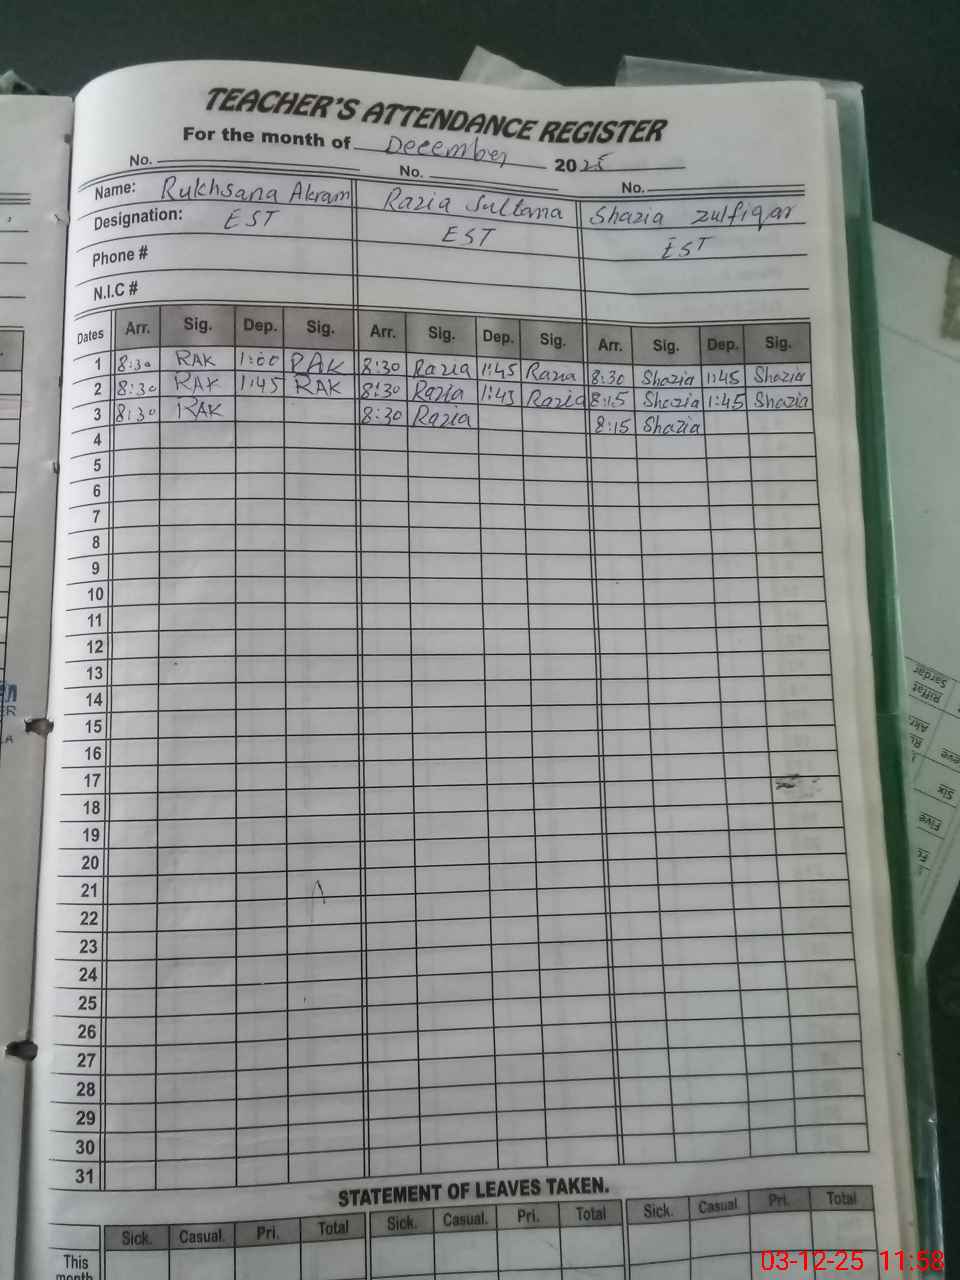 TEACHER'S ATTENDANCE REGISTER
For the month of December 2025
No. No. No.
Name: Rukhsana Akram Razia Sultana Shazia Zulfiqar
Designation: EST EST EST
Phone #
N.I.C #
Dates Arr. Sig. Dep. Sig. Arr. Sig. Dep. Sig. Arr. Sig. Dep. Sig.
1 8:30 RAK 1:00 RAK 8:30 Razia 1:45 Razia 8:30 Shazia 1:45 Shazia
2 8:30 RAK 1:45 RAK 8:30 Razia 1:45 Razia 8:15 Shazia 1:45 Shazia
3 8:30 RAK 8:30 Razia 8:15 Shazia
4
5
6
7
8
9
10
11
12
13
14
15
16
17
18
19
20
21
22
23
24
25
26
27
28
29
30
31
STATEMENT OF LEAVES TAKEN.
Sick. Casual. Pri. Total Sick. Casual. Pri. Total Sick. Casual. Pri. Total
This
month
03-12-25 11:58
Sardar
Riffat
Six
Five